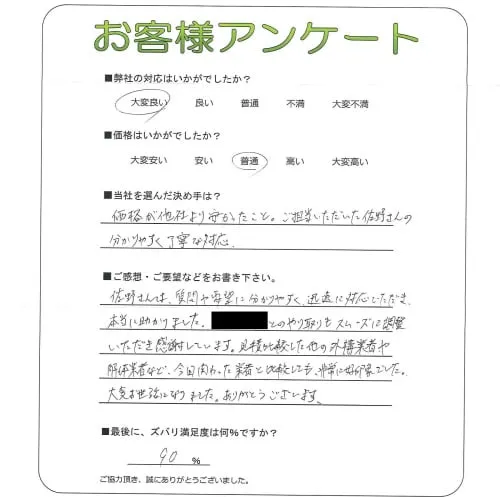 お客様アンケート
■弊社の対応はいかがでしたか?
大変良い 良い 普通 不満 大変不満
■価格はいかがでしたか?
大変安い 安い 普通 高い 大変高い
■当社を選んだ決め手は?
価格が他社より安かったこと。ご担当いただいた佐野さんの
分かりやすく丁寧な対応
■ご感想・ご要望などをお書き下さい。
佐野さんは、質問や要望に分かりやすく、迅速に対応いただき、
本当に助かりました。 とのやり取りもスムーズに調整
いただき感謝しています。見積比較した他の外構業者や
解体業者など、今回関わった業者と比較しても、非常に好印象でした。
大変お世話になりました。ありがとうございます。
■最後に、ズバリ満足度は何%ですか?
90 %
ご協力頂き、誠にありがとうございました。